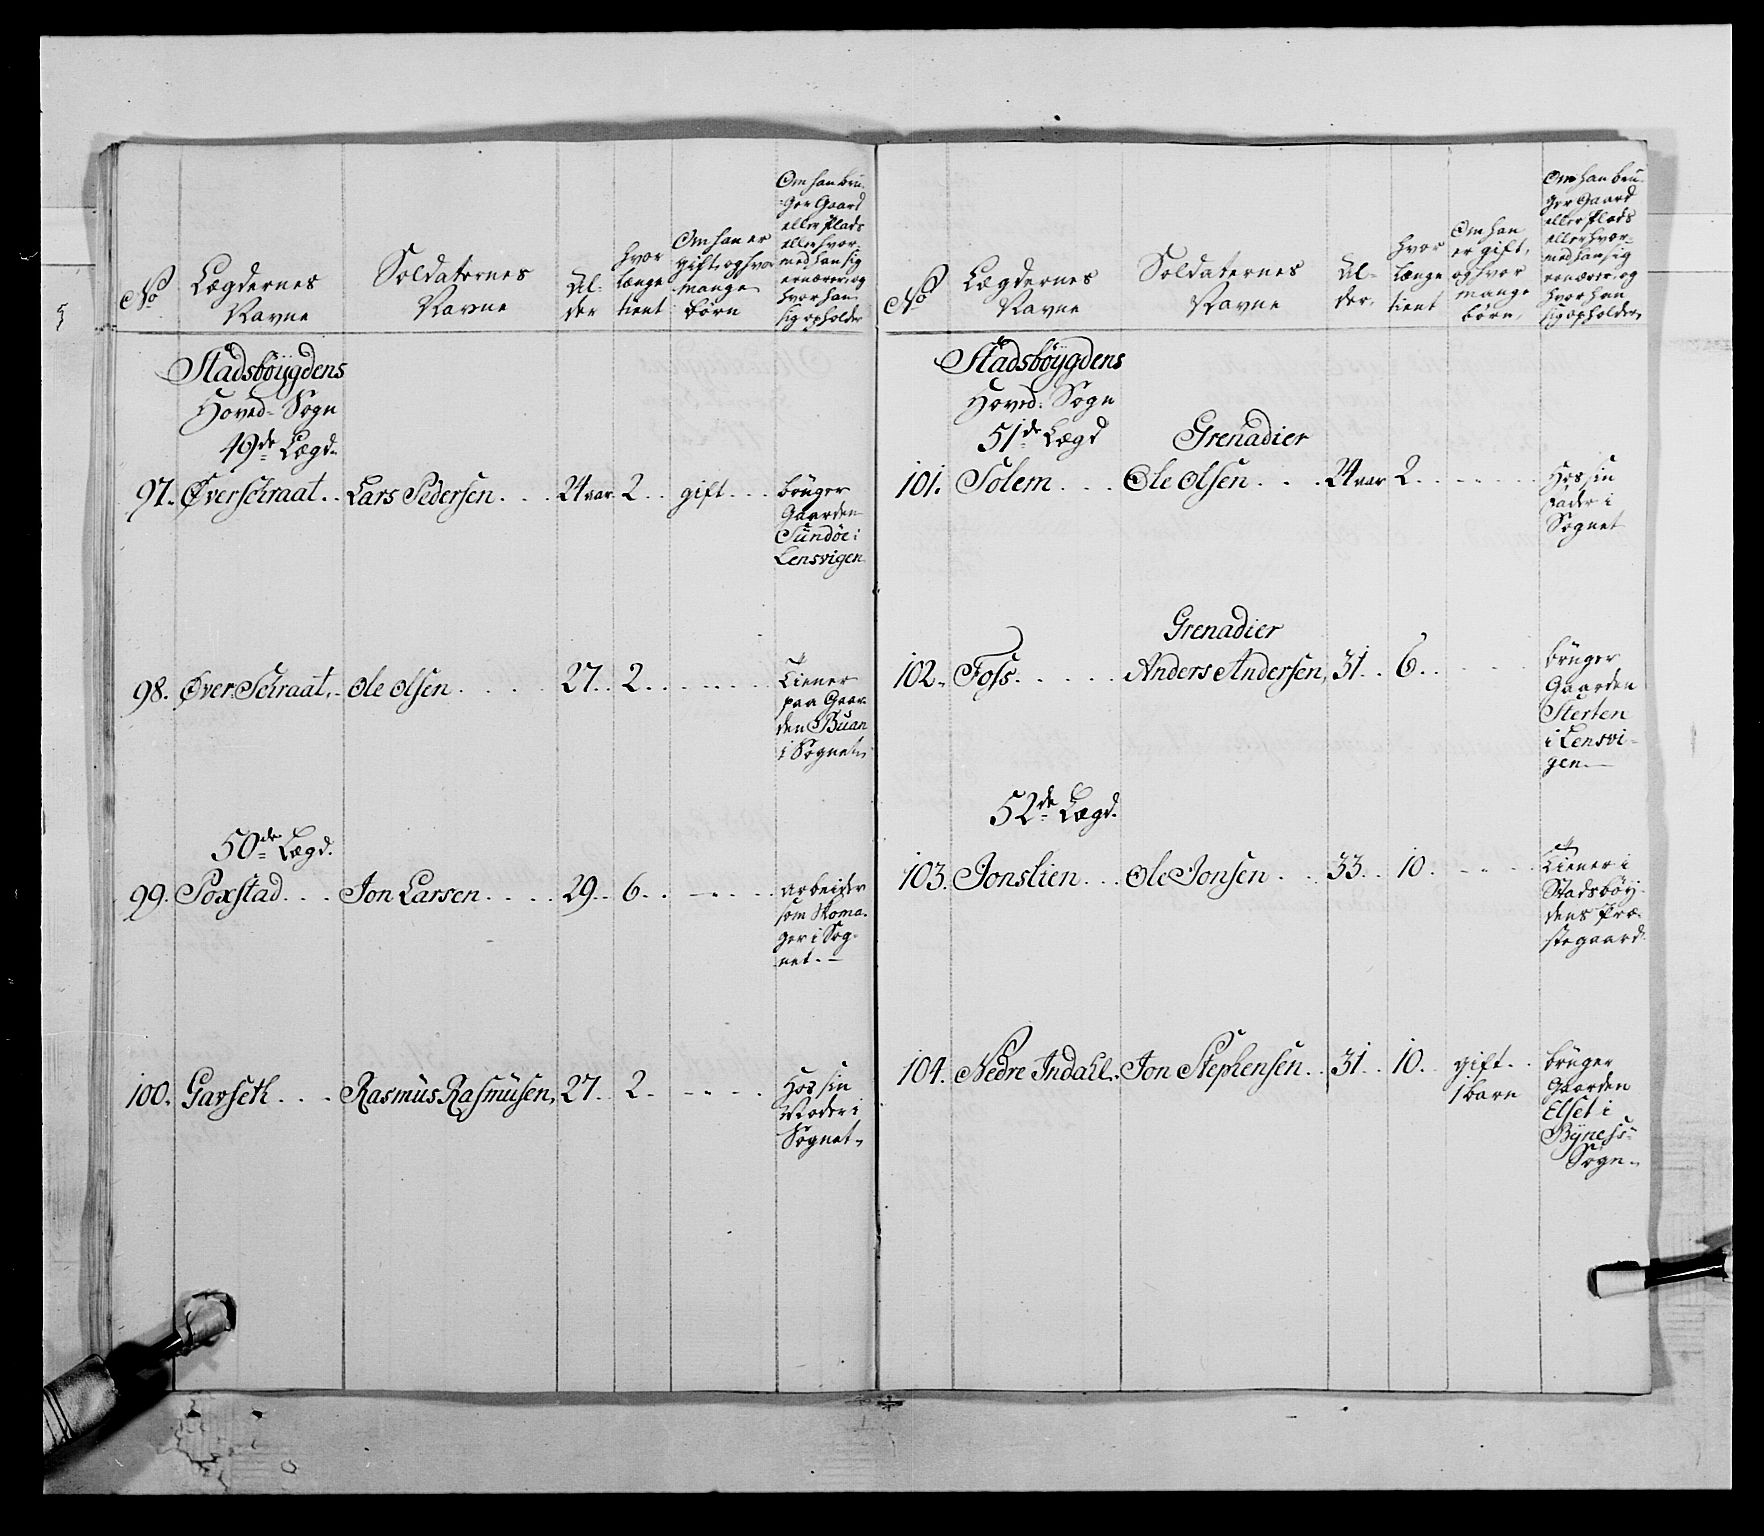 No
Lægdernes
Navne
Soldaternes
Navne
Al-
der
hvor
længe
tient
Om han er
gift, og hvor
mange
børn
Om han bru-
ger Gaard
eller Plads
eller hvor-
med han sig
ernærer, og
hvor han
sig opholder
Stadsbøygdens
Hoved-Sogn
49de Lægd.
97. Øverschraat . . Lars Pedersen . . . 24 aar. 2 . . gift . . . brüger
Gaarden
Sundøe i
Lensvigen
98. Øver Schraat . . Ole Olsen . . . . . 27 . . 2 . . . . . . . . Tiener
paa Gaar-
den Buan
i Sognet.
50de Lægd.
99. Poxstad . . . Jon Larsen . . . . 29 . . 6 . . - . . . . arbeider
som Skoma-
ger i Sog-
net. —
100. Garseth . . . Rasmus Rasmüsen, 27 . . 2 . . - . . . Hos sin
Moder i
Sognet.
No
Lægdernes
Navne
Soldaternes
Navne
Al-
der,
hvor
længe
tient
Om han
er gift,
og hvor
mange
børn,
Om han bru-
ger Gaard
eller Plads
eller hvor-
med han sig
ernærer, og
hvor han
sig opholder,
Stadsbøygdens
Hoved-Sogn
51de Lægd
Grenadier
101. Solem . . . Ole Olsen . . . 24 aar 2 . . - . . . . Hos sin
Fader i
Sognet
Grenadier
102. Foss . . . . . Anders Andersen, 31 . . 6 . . . . . . brüger
Gaarden
Sterten
i Lensvi-
gen. —
52de Lægd.
103. Jonslien . . . Ole Jonsen . . . 33 . . 10 . . - . . . Tiener i
Stadsbøy-
dens Præ-
stegaard.
104. Nedre Indahl . . Jon Stephensen . . 31 . . 10 . . gift . . brüger
1 barn
Gaarden
Elset i
Bÿness-
Sogn.